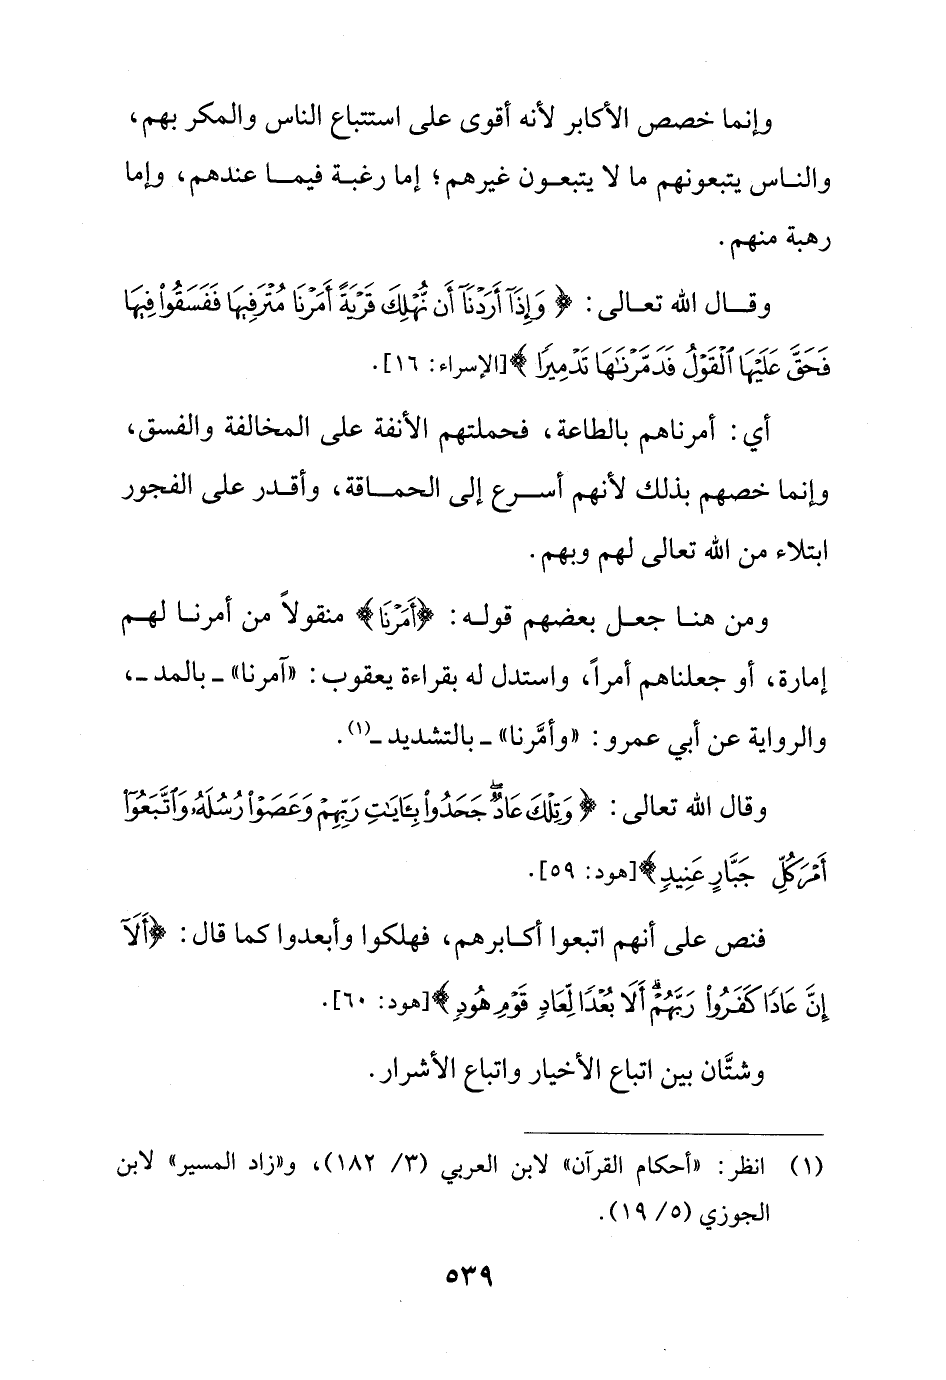 وإنما خصص الأكابر لأنه أقوى على استتباع الناس والمكر بهم،
والنـاس يتبعونهم ما لا يتبعـون غيرهم؛ إما رغبـة فيمـا عندهم، وإما
رهبة منهم.
وقـال الله تعـالى: ﴿ وَإِذَآ أَرَدْنَآ أَن نُّهْلِكَ قَرْيَةً أَمَرْنَا مُتْرَفِيهَا فَفَسَقُوا۟ فِيهَا
فَحَقَّ عَلَيْهَا ٱلْقَوْلُ فَدَمَّرْنَـٰهَا تَدْمِيرًا ﴾ [الإسراء: ١٦].
أي: أمرناهم بالطاعة، فحملتهم الأنفة على المخالفة والفسق،
وإنما خصهم بذلك لأنهم أسـرع إلى الحمـاقة، وأقـدر على الفجور
ابتلاء من الله تعالى لهم وبهم.
ومن هنـا جعـل بعضهم قولـه: ﴿أَمَرْنَا﴾ منقولاً من أمرنـا لهـم
إمارة، أو جعلناهم أمراً، واستدل له بقراءة يعقوب: «آمرنا» ـ بالمد ـ،
والرواية عن أبي عمرو: «وأمَّرنا» ـ بالتشديد ـ(١).
وقال الله تعالى: ﴿ وَتِلْكَ عَادٌ ۖ جَحَدُوا۟ بِـَٔايَـٰتِ رَبِّهِمْ وَعَصَوْا۟ رُسُلَهُۥ وَٱتَّبَعُوٓا۟
أَمْرَ كُلِّ جَبَّارٍ عَنِيدٍ ﴾ [هود: ٥٩].
فنص على أنهم اتبعوا أكـابرهم، فهلكوا وأبعدوا كما قال: ﴿أَلَآ
إِنَّ عَادًا كَفَرُوا۟ رَبَّهُمْ ۗ أَلَا بُعْدًا لِّعَادٍ قَوْمِ هُودٍ ﴾ [هود: ٦٠].
وشتَّان بين اتباع الأخيار واتباع الأشرار.
(١) انظر: «أحكام القرآن» لابن العربي (٣/ ١٨٢)، و«زاد المسير» لابن
الجوزي (٥/ ١٩).
٥٣٩